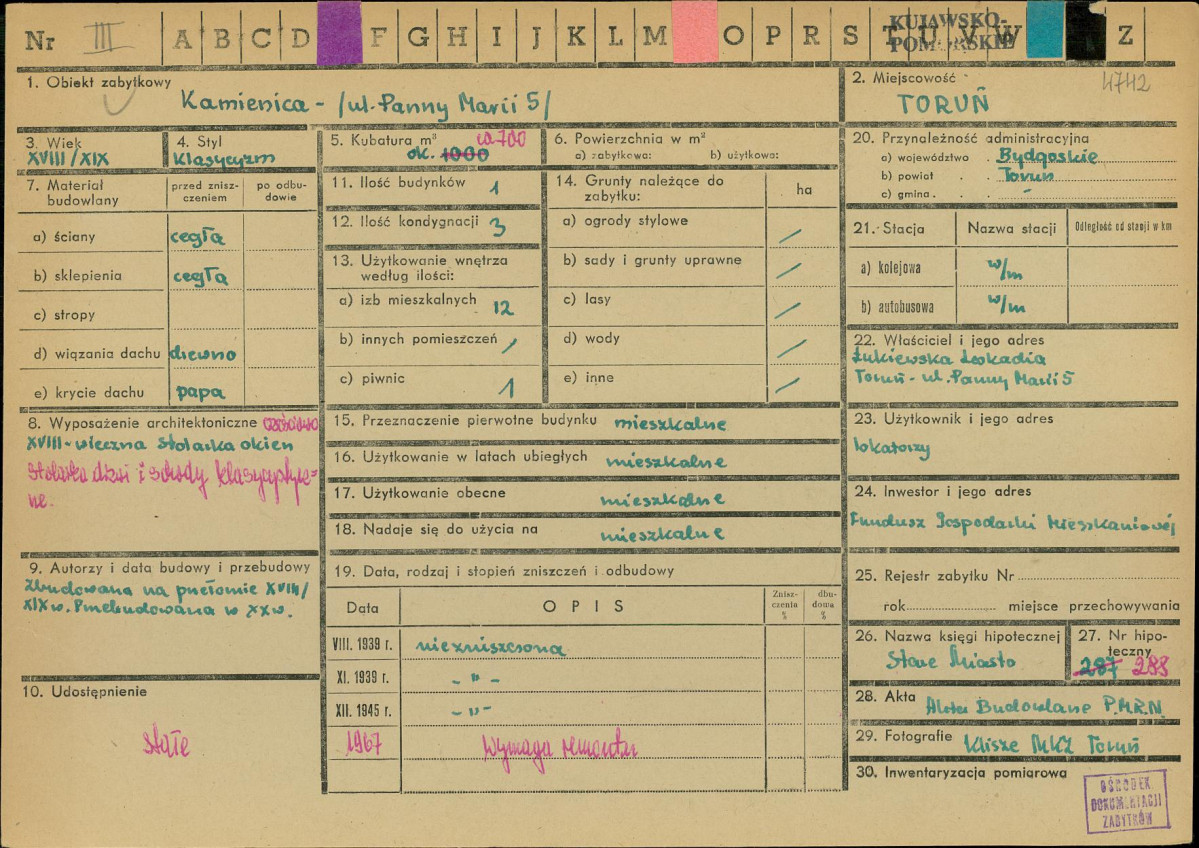 Nr III A B C D F G H I J K L M O P R S T U V W Z
KUJAWSKO-
POMORSKIE
1. Obiekt zabytkowy
Kamienica - /ul. Panny Marii 5/
2. Miejscowość
4742
TORUŃ
3. Wiek
XVIII/XIX
4. Styl
Klasycyzm
5. Kubatura m³ ca 700
ok. 1000
6. Powierzchnia w m²
a) zabytkowa: b) użytkowa:
20. Przynależność administracyjna
a) województwo . Bydgoskie
b) powiat . . Toruń
c) gmina . . -
7. Materiał budowlany
przed znisz-
czeniem
po odbu-
dowie
a) ściany cegła
b) sklepienia cegła
c) stropy
d) wiązania dachu drewno
e) krycie dachu papa
11. Ilość budynków 1
12. Ilość kondygnacji 3
13. Użytkowanie wnętrza
według ilości:
a) izb mieszkalnych 12
b) innych pomieszczeń /
c) piwnic 1
14. Grunty należące do
zabytku:
ha
a) ogrody stylowe /
b) sady i grunty uprawne /
c) lasy /
d) wody /
e) inne /
21. Stacja Nazwa stacji Odległość od stacji w km
a) kolejowa w/m
b) autobusowa w/m
22. Właściciel i jego adres
Łukiewska Leokadia
Toruń - ul. Panny Marii 5
8. Wyposażenie architektoniczne częściowo
XVIII-wieczna stolarka okien
stolarka drzwi i schody klasycysty=
ne.
15. Przeznaczenie pierwotne budynku mieszkalne
16. Użytkowanie w latach ubiegłych mieszkalne
17. Użytkowanie obecne mieszkalne
18. Nadaje się do użycia na mieszkalne
23. Użytkownik i jego adres
lokatorzy
24. Inwestor i jego adres
Fundusz Gospodarki Mieszkaniowej
9. Autorzy i data budowy i przebudowy
Zbudowana na przełomie XVIII/
XIX w. Przebudowana w XX w.
10. Udostępnienie
stałe
19. Data, rodzaj i stopień zniszczeń i odbudowy
Data OPIS
Znisz-
czenia
%
dbu-
dowa
%
VIII. 1939 r. niezniszczona
XI. 1939 r. - " -
XII. 1945 r. - " -
1967 Wymaga remontu
25. Rejestr zabytku Nr
rok miejsce przechowywania
26. Nazwa księgi hipotecznej
Stare Miasto
27. Nr hipo-
teczny
287 288
28. Akta Akta Budowlane P.M.R.N.
29. Fotografie Klisze MKZ Toruń
30. Inwentaryzacja pomiarowa
OŚRODEK
DOKUMENTACJI
ZABYTKÓW